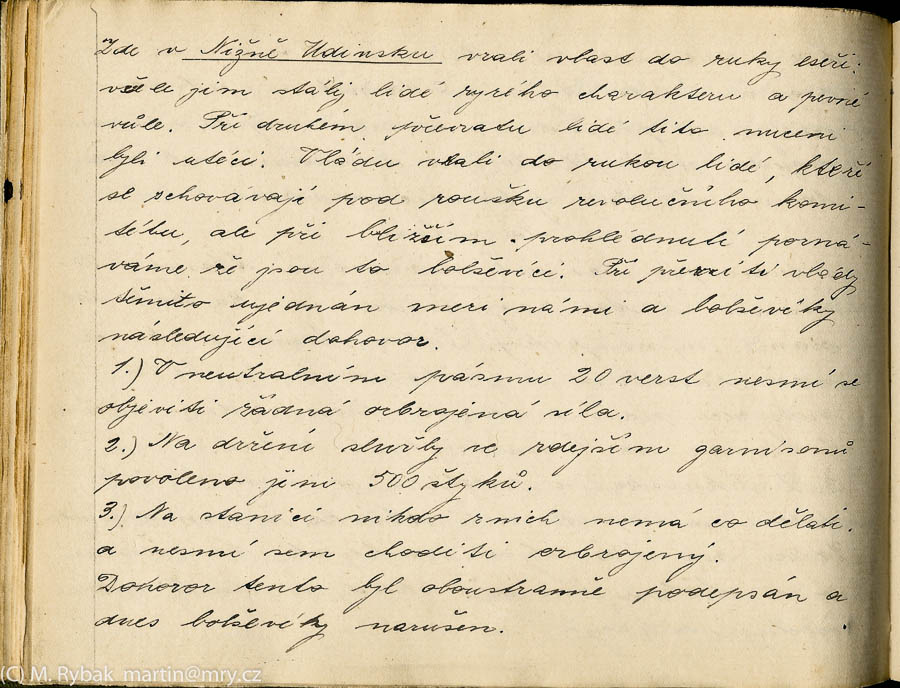 Zde v Nižně Udinsku vzali vlast do ruky eseři:
vůle jim stálý lidé ryzího charakteru a pevné
vůle. Při druhém převratu lidé tito nuceni
byli utéci. Vládu vzali do rukou lidé, kteří
se schovávají pod roušku revolučního komi-
tétu, ale při bližším prohlédnutí pozná-
váme že jsou to bolševíci. Při převzití vlády
těmito ujednán mezi námi a bolševíky
následující dohovor.
1.) V neutralním pásmu 20 verst nesmí se
objeviti žádná ozbrojená síla.
2.) Na držení služby ve zdejším garnisonů
povoleno jim 500 štyků.
3.) Na stanici nikdo z nich nemá co dělati.
a nesmí sem choditi ozbrojený.
Dohovor tento byl oboustranně podepsán a
dnes bolševíky narušen.
(C) M. Rybak martin@mry.cz